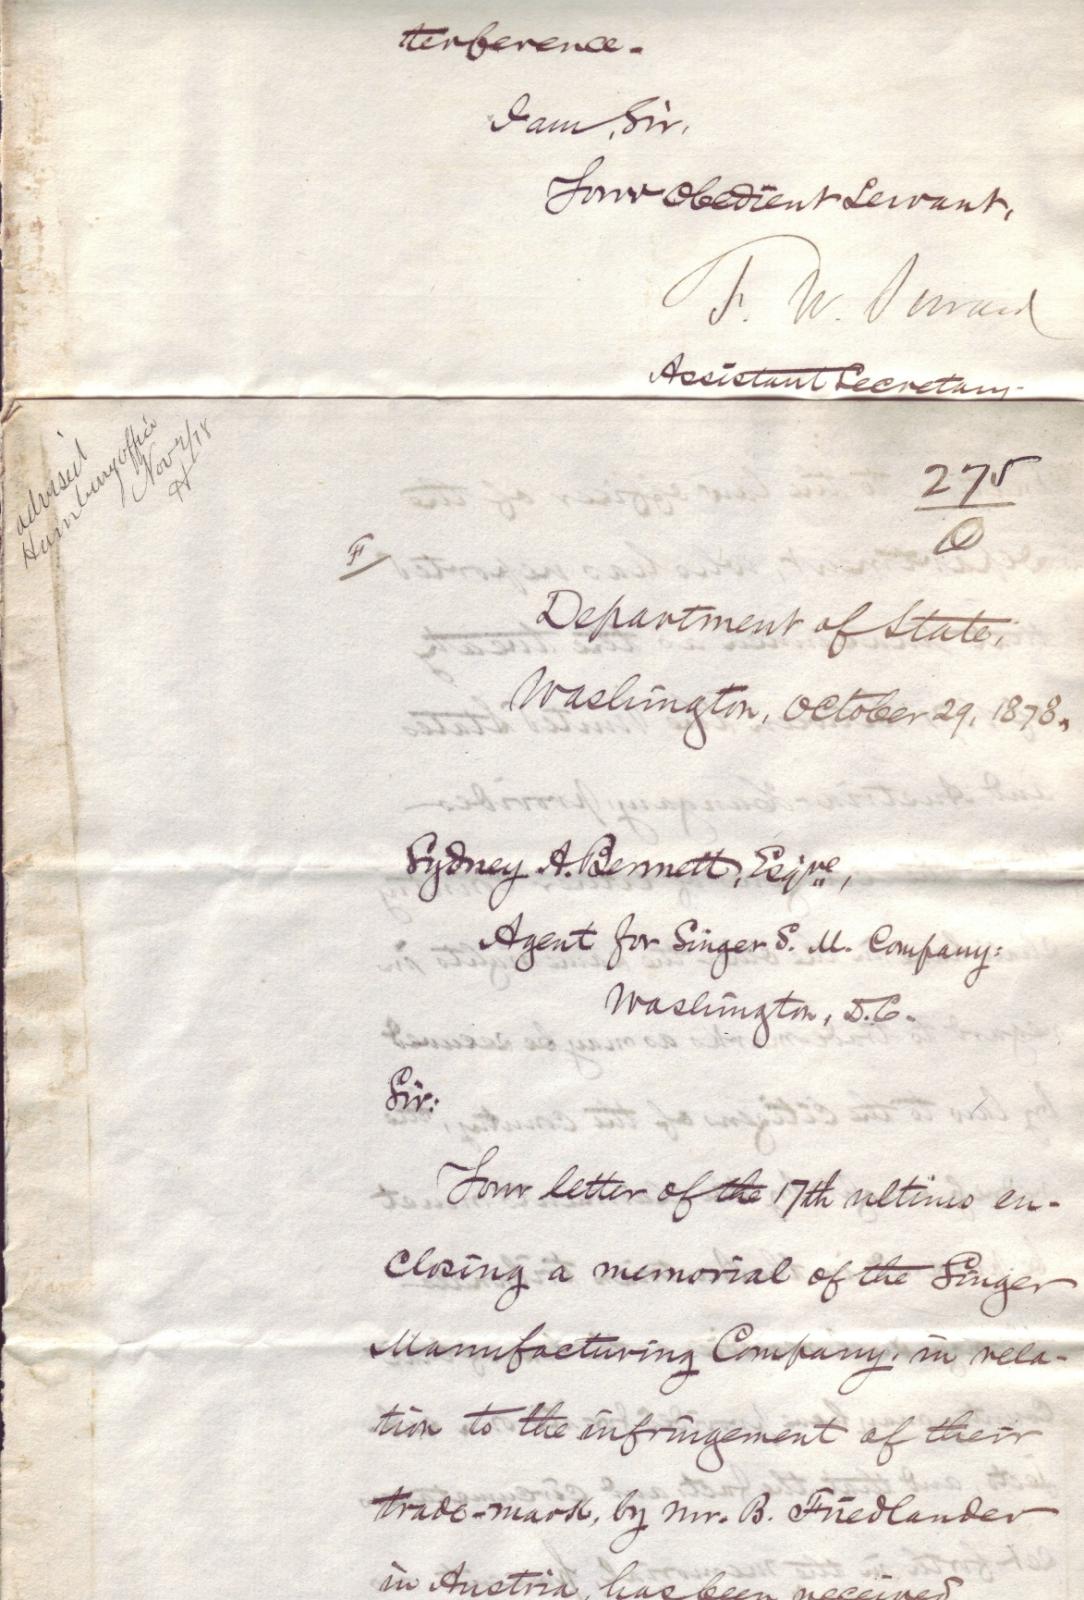 terference.
I am, Sir,
Your Obedient Servant,
F. W. Seward
Assistant Secretary.
advised
Hamburg office
Nov 2/78
H
275
F
Department of State,
Washington, October 29, 1878.
Sydney A. Bennett, Esqre,
Agent for Singer S. M. Company:
Washington, D.C.
Sir:
Your letter of the 17th ultimo en-
closing a memorial of the Singer
Manufacturing Company, in rela-
tion to the infringement of their
trade-mark, by Mr. B. Friedlander
in Austria, has been received